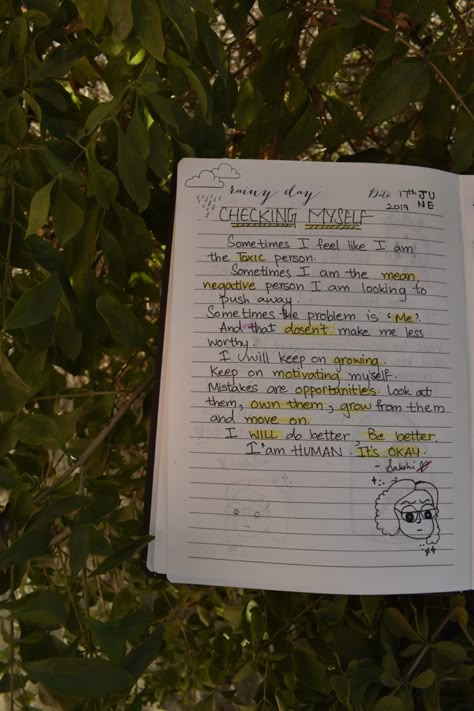 rainy day
Date 17th JUNE 2019
CHECKING MYSELF
Sometimes I feel like I am
the Toxic person.
Sometimes I am the mean,
negative person I am looking to
push away.
Sometimes the problem is 'Me'.
And that dosent make me less
worthy.
I will keep on growing.
Keep on motivating myself.
Mistakes are opportunities. Look at
them, own them, grow from them
and move on.
I WILL do better, Be better.
I am HUMAN. It's OKAY.
- Sakshi